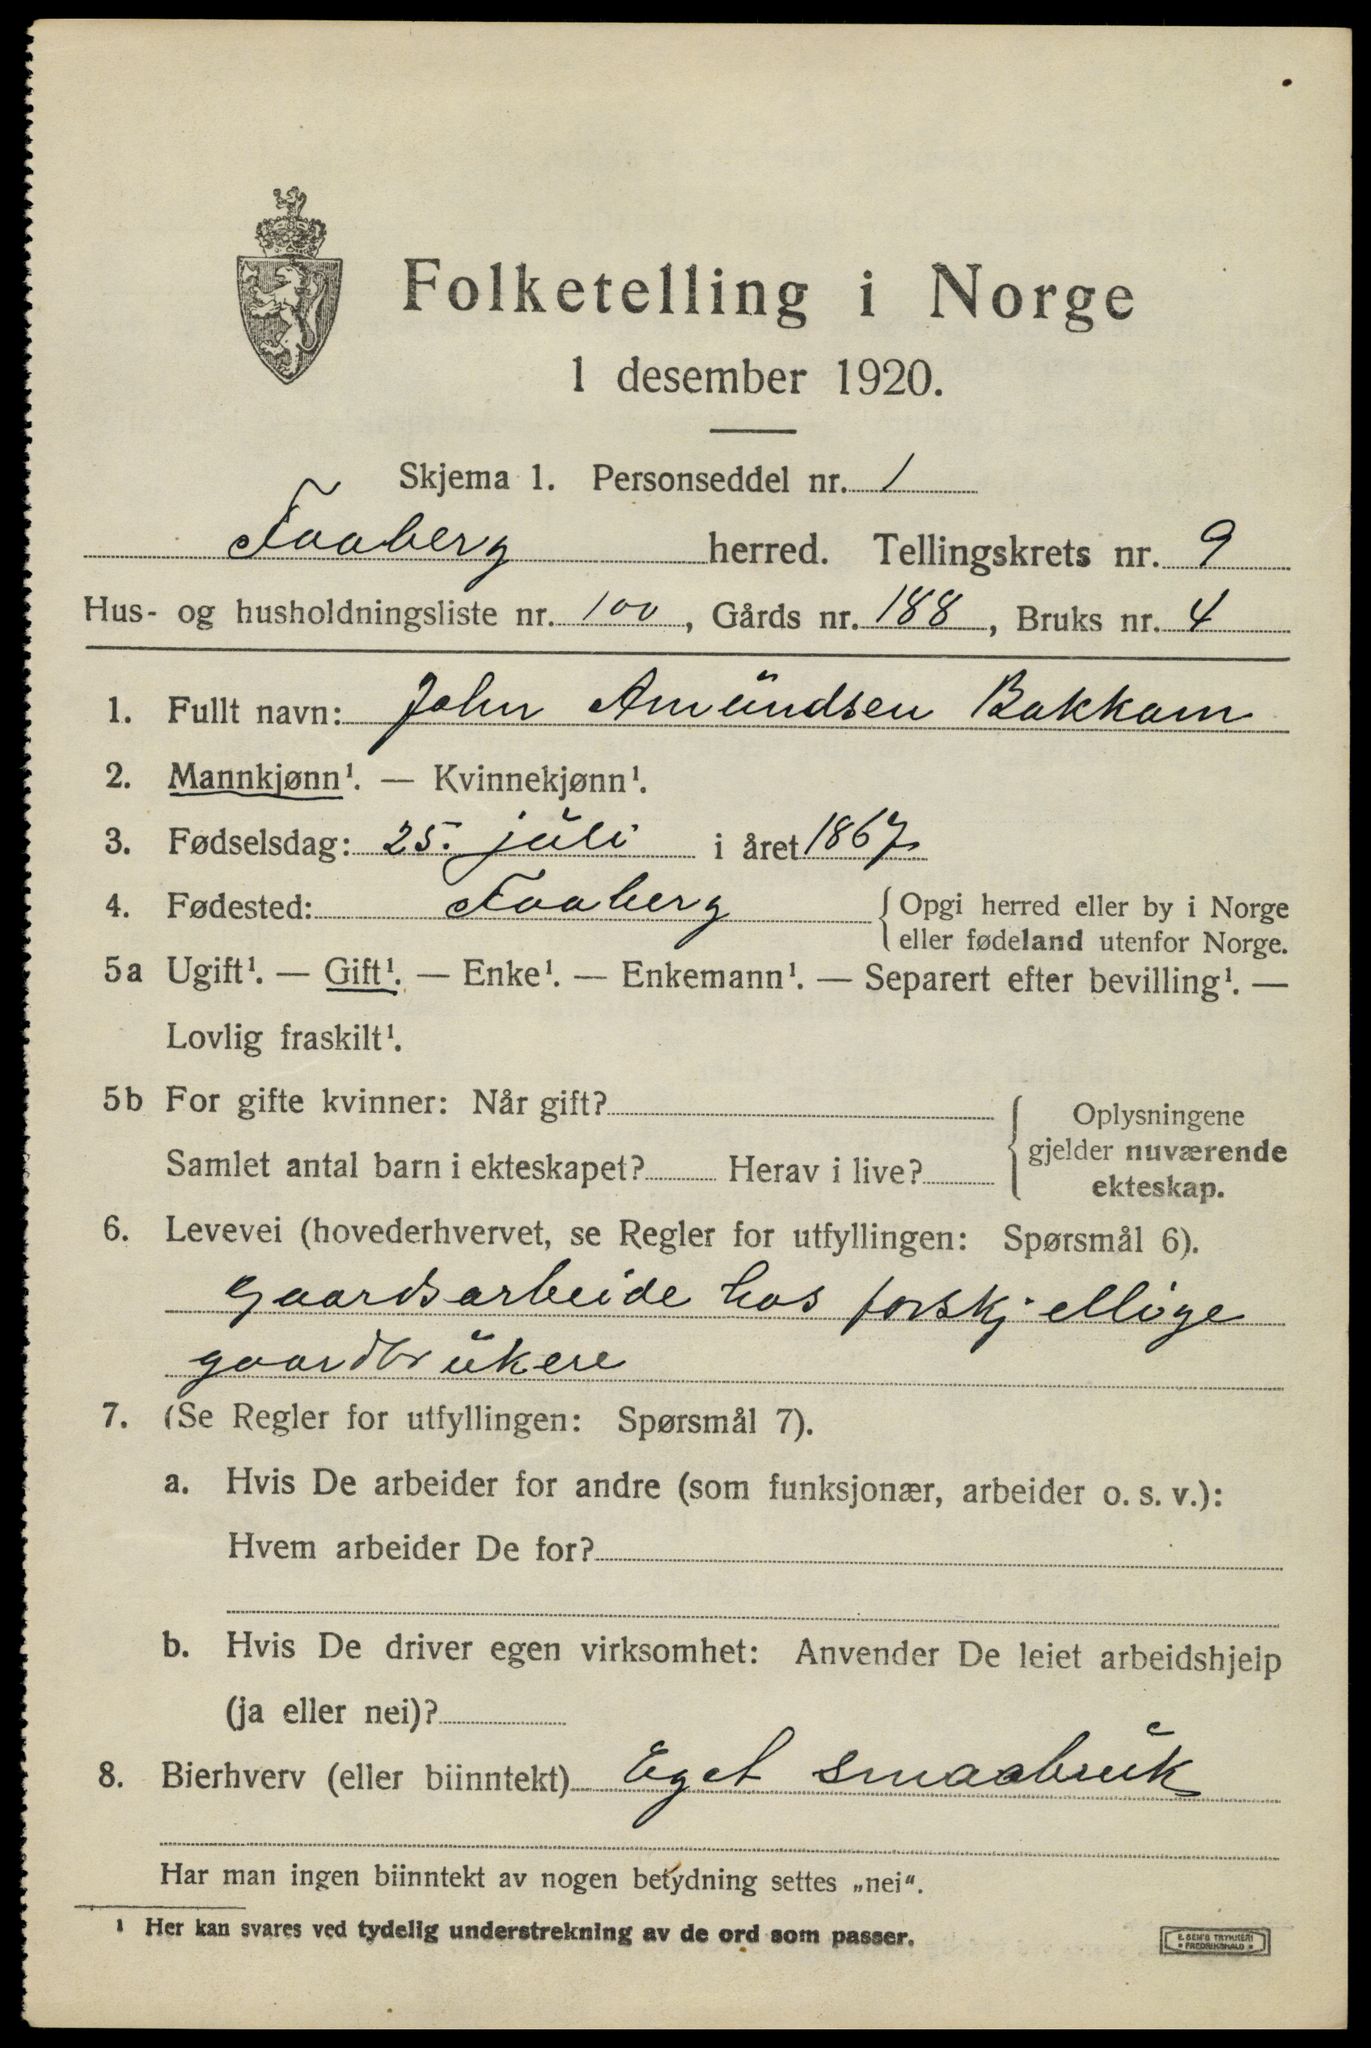 Folketelling i Norge
1 desember 1920.
Skjema 1. Personseddel nr. 1
Faaberg herred. Tellingskrets nr. 9
Hus- og husholdningsliste nr. 100, Gårds nr. 188, Bruks nr. 4
1. Fullt navn: John Amundsen Bakkom
2. Mannkjønn¹. — Kvinnekjønn¹.
3. Fødselsdag: 25. juli i året 1867
4. Fødested: Faaberg {Opgi herred eller by i Norge
eller fødeland utenfor Norge.
5a Ugift¹. — Gift¹. — Enke¹. — Enkemann¹. — Separert efter bevilling¹. —
Lovlig fraskilt¹.
5b For gifte kvinner: Når gift? { Oplysningene
gjelder nuværende
Samlet antal barn i ekteskapet? Herav i live?
ekteskap.
6. Levevei (hovederhvervet, se Regler for utfyllingen: Spørsmål 6).
Gaardsarbeide hos forskjellige
gaardbrukere
7. (Se Regler for utfyllingen: Spørsmål 7).
a. Hvis De arbeider for andre (som funksjonær, arbeider o. s. v.):
Hvem arbeider De for?
b. Hvis De driver egen virksomhet: Anvender De leiet arbeidshjelp
(ja eller nei)?
8. Bierhverv (eller biinntekt) Eget smaabruk
Har man ingen biinntekt av nogen betydning settes „nei".
¹ Her kan svares ved tydelig understrekning av de ord som passer.
E. SEM'S TRYKKERI
* FREDRIKSHALD *